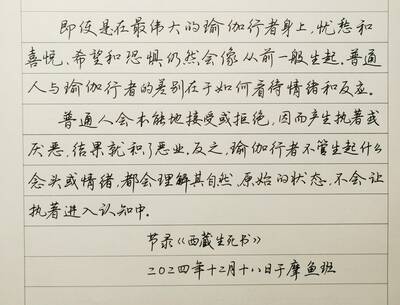 即使是在最伟大的瑜伽行者身上,忧愁和
喜悦、希望和恐惧仍然会像从前一般生起.普通
人与瑜伽行者的差别在于如何看待情绪和反应。
普通人会本能地接受或拒绝,因而产生执著或
厌恶,结果就积了恶业.反之,瑜伽行者不管生起什么
念头或情绪,都会理解其自然、原始的状态,不会让
执著进入认知中.
节录《西藏生死书》
二〇二四年十二月十八日于摩鱼班